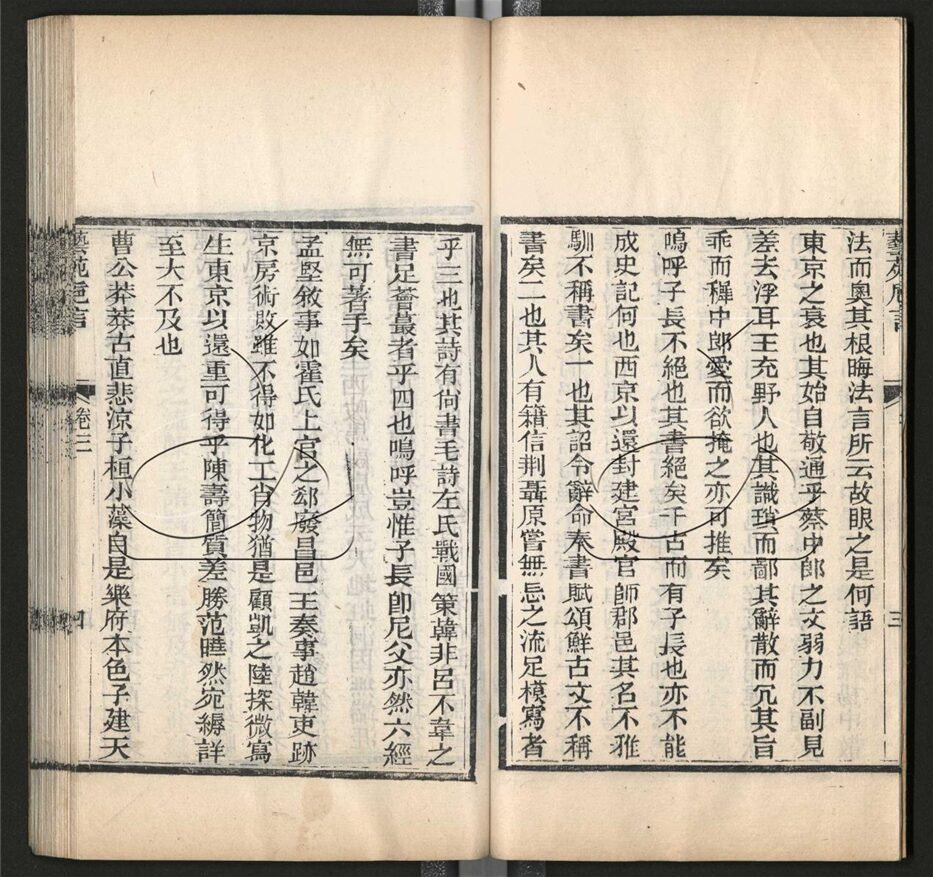 法而奧其根晦法言所云故眼之是何語
東京之衰也其始自敬通乎蔡中郎之文弱力不副見
差去浮耳王充野人也其識瑣而鄙其辭散而冗其旨
乖而稺中郎愛而欲掩之亦可推矣
嗚呼子長不絕也其書絕矣千古而有子長也亦不能
成史記何也西京以還封建宮殿官師郡邑其名不雅
馴不稱書矣一也其詔令辭命奏書賦頌鮮古文不稱
書矣二也其人有籍信荆聶原嘗無忌之流足模寫者
乎三也其詩有尙書毛詩左氏戰國策韓非呂不韋之
書足薈蕞者乎四也嗚呼豈惟子長卽尼父亦然六經
無可著手矣
孟堅敘事如霍氏上官之郄廢昌邑王奏事趙韓吏跡
京房術敗雖不得如化工肖物猶是顧凱之陸探微寫
生東京以還重可得乎陳壽簡質差勝范曄然宛縟詳
至大不及也
曹公莽莽古直悲涼子桓小藻自是樂府本色子建天
藝苑卮言
卷三
四